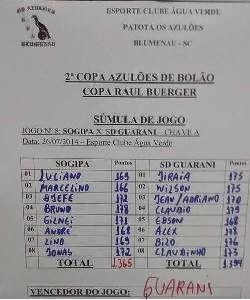 ESPORTE CLUBE ÁGUA VERDE
PATOTA OS AZULÕES
BLUMENAU - SC
2ª COPA AZULÕES DE BOLÃO
COPA RAUL BUERGER
SÚMULA DE JOGO
JOGO Nº 8: SOGIPA X SD GUARANI - CHAVE A
Data: 26/07/2014 - Esporte Clube Água Verde
SOGIPA Pontos SD GUARANI Pontos
01 JULIANO 169 01 JIRAIA 175
02 MARCELINO 166 02 WILSON 175
03 173 03 JEAN/ADRIANO 170
04 BRUNO 178 04 CLAUDIO 179
05 GILNEI 171 05 EDSON 168
06 ANDRÉ 168 06 ALEX 178
07 LINO 169 07 BIZO 176
08 JONAS 172 08 CLAUDINHO 173
TOTAL 1.365 TOTAL 1.394
VENCEDOR DO JOGO: GUARANI